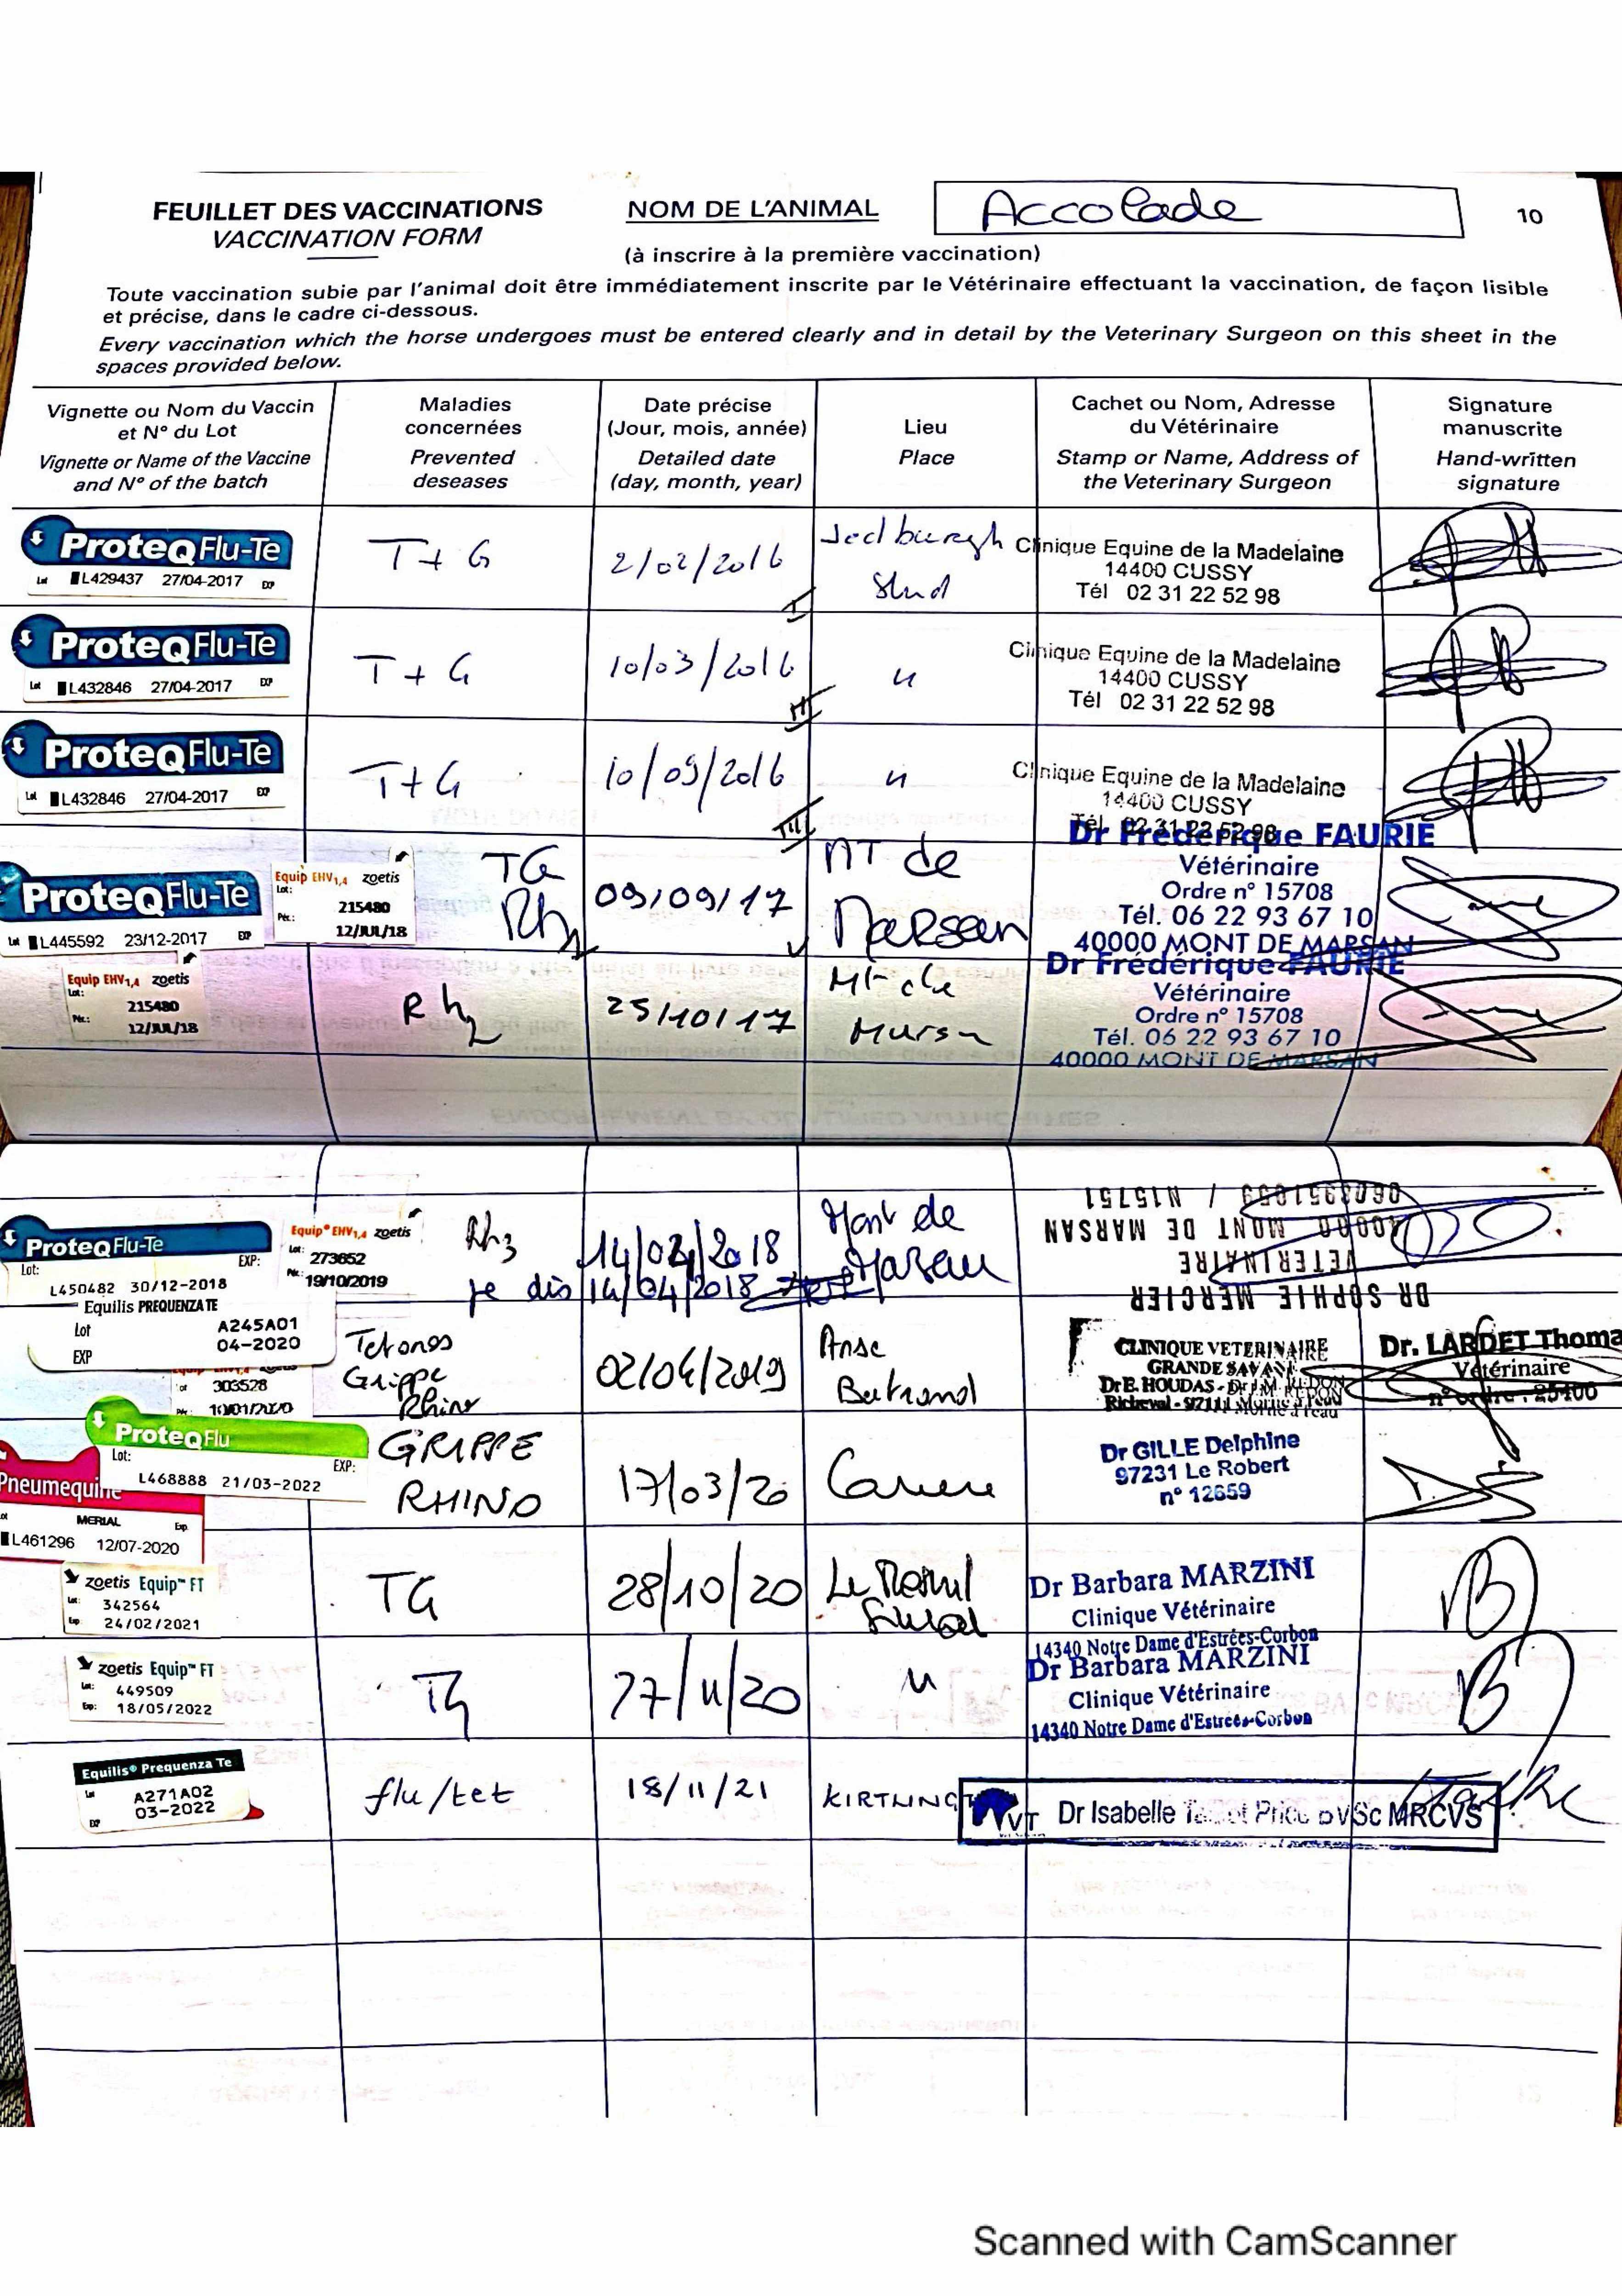 FEUILLET DES VACCINATIONS
VACCINATION FORM
NOM DE L'ANIMAL
Accolade
10
(à inscrire à la première vaccination)
Toute vaccination subie par l'animal doit être immédiatement inscrite par le Vétérinaire effectuant la vaccination, de façon lisible
et précise, dans le cadre ci-dessous.
Every vaccination which the horse undergoes must be entered clearly and in detail by the Veterinary Surgeon on this sheet in the
spaces provided below.
Vignette ou Nom du Vaccin
et N° du Lot
Vignette or Name of the Vaccine
and N° of the batch
Maladies
concernées
Prevented
deseases
Date précise
(Jour, mois, année)
Detailed date
(day, month, year)
Lieu
Place
Cachet ou Nom, Adresse
du Vétérinaire
Stamp or Name, Address of
the Veterinary Surgeon
Signature
manuscrite
Hand-written
signature
ProteqFlu-Te
Lot L429437 27/04-2017 EXP
T + G
2/02/2016
I
Jedburgh
Stud
Clinique Equine de la Madelaine
14400 CUSSY
Tél 02 31 22 52 98
ProteqFlu-Te
Lot L432846 27/04-2017 EXP
T + G
10/03/2016
II
"
Clinique Equine de la Madelaine
14400 CUSSY
Tél 02 31 22 52 98
ProteqFlu-Te
Lot L432846 27/04-2017 EXP
T+G
10/09/2016
III
"
Clinique Equine de la Madelaine
14400 CUSSY
Tél 02 31 22 52 98
ProteqFlu-Te
Lot L445592 23/12-2017 EXP
Equip EHV1,4 zoetis
Lot:
215480
Pér.:
12/JUL/18
TG
Rh1
09/09/17
MT de
Marsan
Dr Frédérique FAURIE
Vétérinaire
Ordre n° 15708
Tél. 06 22 93 67 10
40000 MONT DE MARSAN
Equip EHV1,4 zoetis
Lot:
215480
Pér.:
12/JUL/18
Rh2
25/10/17
Mt de
Marsan
Dr Frédérique FAURIE
Vétérinaire
Ordre n° 15708
Tél. 06 22 93 67 10
40000 MONT DE MARSAN
ProteqFlu-Te
Lot: EXP:
L450482 30/12-2018
Equip® EHV1,4 zoetis
Lot:
273652
Pér.:
19/10/2019
Rh3
14/04/2018
je dis 14/04/2018
Mont de
Marsan
DR SOPHIE MERCIER
VETERINAIRE
40000 MONT DE MARSAN
/ N15751
Equilis PREQUENZA TE
Lot A245A01
EXP 04-2020
303528
10/01/2020
Tetanos
Grippe
Rhino
02/04/2019
Anse
Bertrand
CLINIQUE VETERINAIRE
GRANDE SAVANE
Dr E. HOUDAS - Dr J.M. REDON
Richeval - 97111 Morne à l'eau
Dr. LARDET Thoma
Vétérinaire
n° ordre : 25400
ProteqFlu
Lot: EXP:
L468888 21/03-2022
Pneumequine
MERIAL
Exp.
L461296 12/07-2020
GRIPPE
RHINO
17/03/20
Dr GILLE Delphine
97231 Le Robert
n° 12659
zoetis Equip™ FT
Lot: 342564
Exp: 24/02/2021
TG
28/10/20
Dr Barbara MARZINI
Clinique Vétérinaire
14340 Notre Dame d'Estrées-Corbon
zoetis Equip™ FT
Lot: 449509
Exp: 18/05/2022
TG
27/11/20
"
Dr Barbara MARZINI
Clinique Vétérinaire
14340 Notre Dame d'Estrées-Corbon
Equilis® Prequenza Te
Lot A271A02
EXP 03-2022
flu/tet
18/11/21
KIRTLING
VT Dr Isabelle Price BVSc MRCVS
Scanned with CamScanner